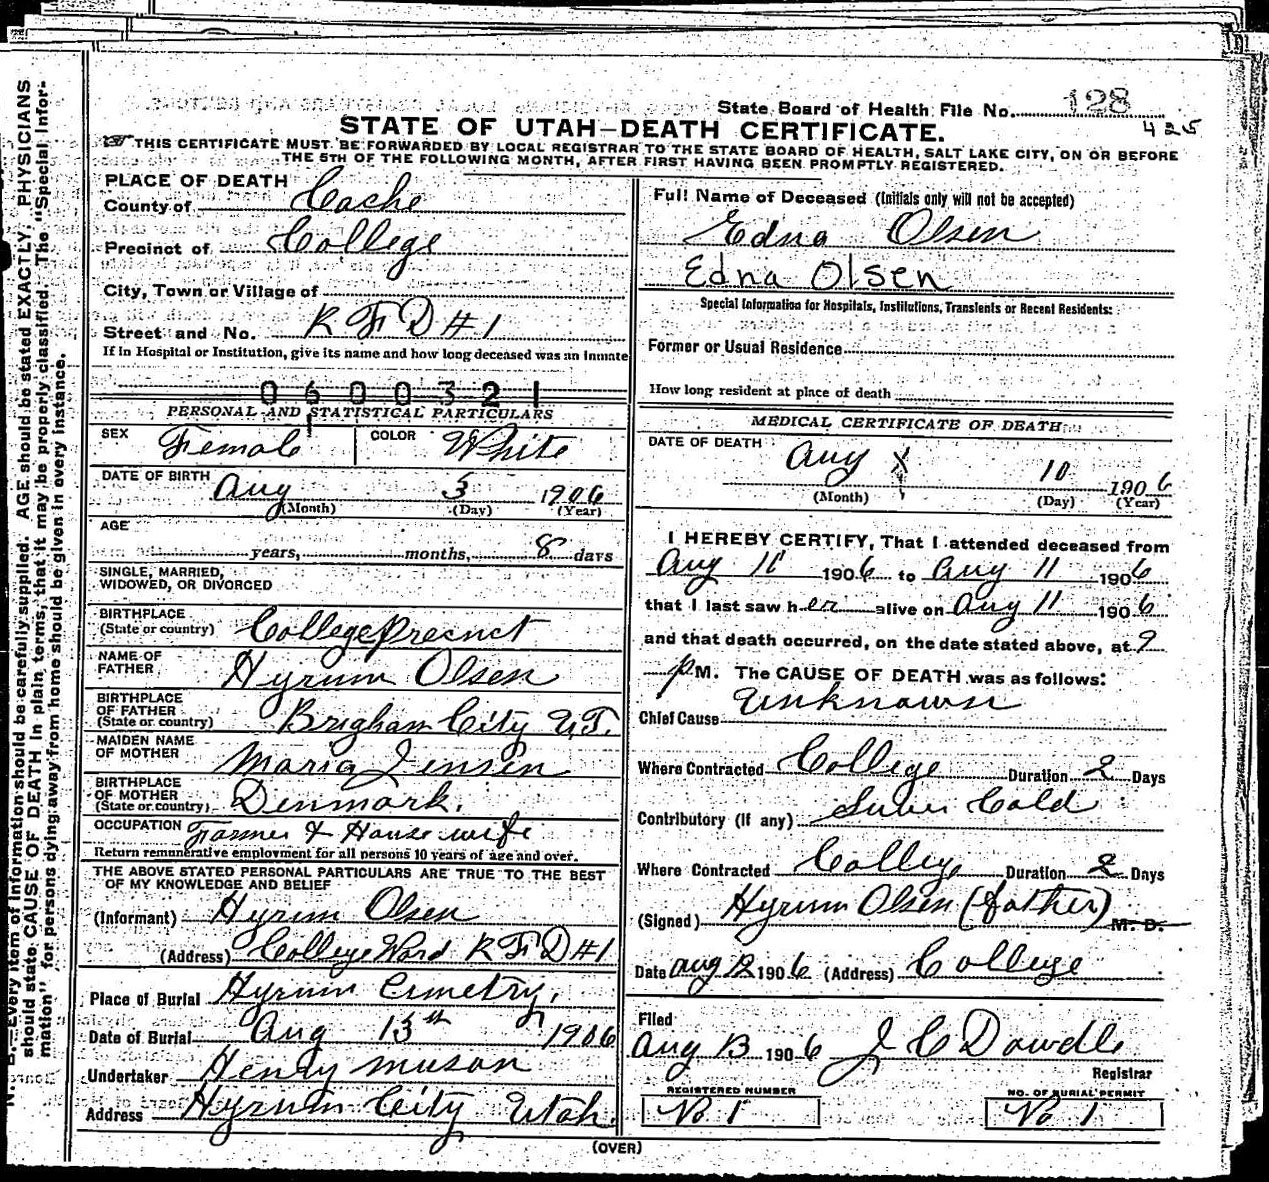 State Board of Health File No. 128
425
STATE OF UTAH—DEATH CERTIFICATE.
THIS CERTIFICATE MUST BE FORWARDED BY LOCAL REGISTRAR TO THE STATE BOARD OF HEALTH, SALT LAKE CITY, ON OR BEFORE
THE 5TH OF THE FOLLOWING MONTH, AFTER FIRST HAVING BEEN PROMPTLY REGISTERED.
N. B.—Every item of information should be carefully supplied. AGE should be stated EXACTLY. PHYSICIANS
should state CAUSE OF DEATH in plain terms, that it may be properly classified. The "Special Infor-
mation" for persons dying away from home should be given in every instance.
PLACE OF DEATH
County of Cache
Precinct of College
City, Town or Village of
Street and No. R F D #1
If in Hospital or Institution, give its name and how long deceased was an inmate
0600321
PERSONAL AND STATISTICAL PARTICULARS
SEX Female COLOR White
DATE OF BIRTH Aug 3 1906
(Month) (Day) (Year)
AGE
years, months, 8 days
SINGLE, MARRIED,
WIDOWED, OR DIVORCED
BIRTHPLACE
(State or country) College Precnct
NAME OF
FATHER Hyrum Olsen
BIRTHPLACE
OF FATHER
(State or country) Brigham City UT.
MAIDEN NAME
OF MOTHER Maria Jensen
BIRTHPLACE
OF MOTHER
(State or country) Denmark.
OCCUPATION Farmer & Housewife
Return remunerative employment for all persons 10 years of age and over.
THE ABOVE STATED PERSONAL PARTICULARS ARE TRUE TO THE BEST
OF MY KNOWLEDGE AND BELIEF
(Informant) Hyrum Olsen
(Address) College Ward R F D #1
Place of Burial Hyrum Cemetry,
Date of Burial Aug 13th 1906
Undertaker Henry
Address Hyrum City Utah.
Full Name of Deceased (Initials only will not be accepted)
Edna Olsen
Edna Olsen
Special Information for Hospitals, Institutions, Transients or Recent Residents:
Former or Usual Residence
How long resident at place of death
MEDICAL CERTIFICATE OF DEATH
DATE OF DEATH Aug 10 1906
(Month) (Day) (Year)
I HEREBY CERTIFY, That I attended deceased from
Aug 11 1906 to Aug 11 1906
that I last saw her alive on Aug 11 1906
and that death occurred, on the date stated above, at 9
p M. The CAUSE OF DEATH was as follows:
Chief Cause Unknown
Where Contracted College Duration 2 Days
Contributory (if any) Cold
Where Contracted College Duration 2 Days
(Signed) Hyrum Olsen (father) M. D.
Date Aug 12 1906 (Address) College
Filed
Aug 13 1906 J C Dowdle
Registrar
REGISTERED NUMBER
No 1
NO. OF BURIAL PERMIT
No 1
(OVER)